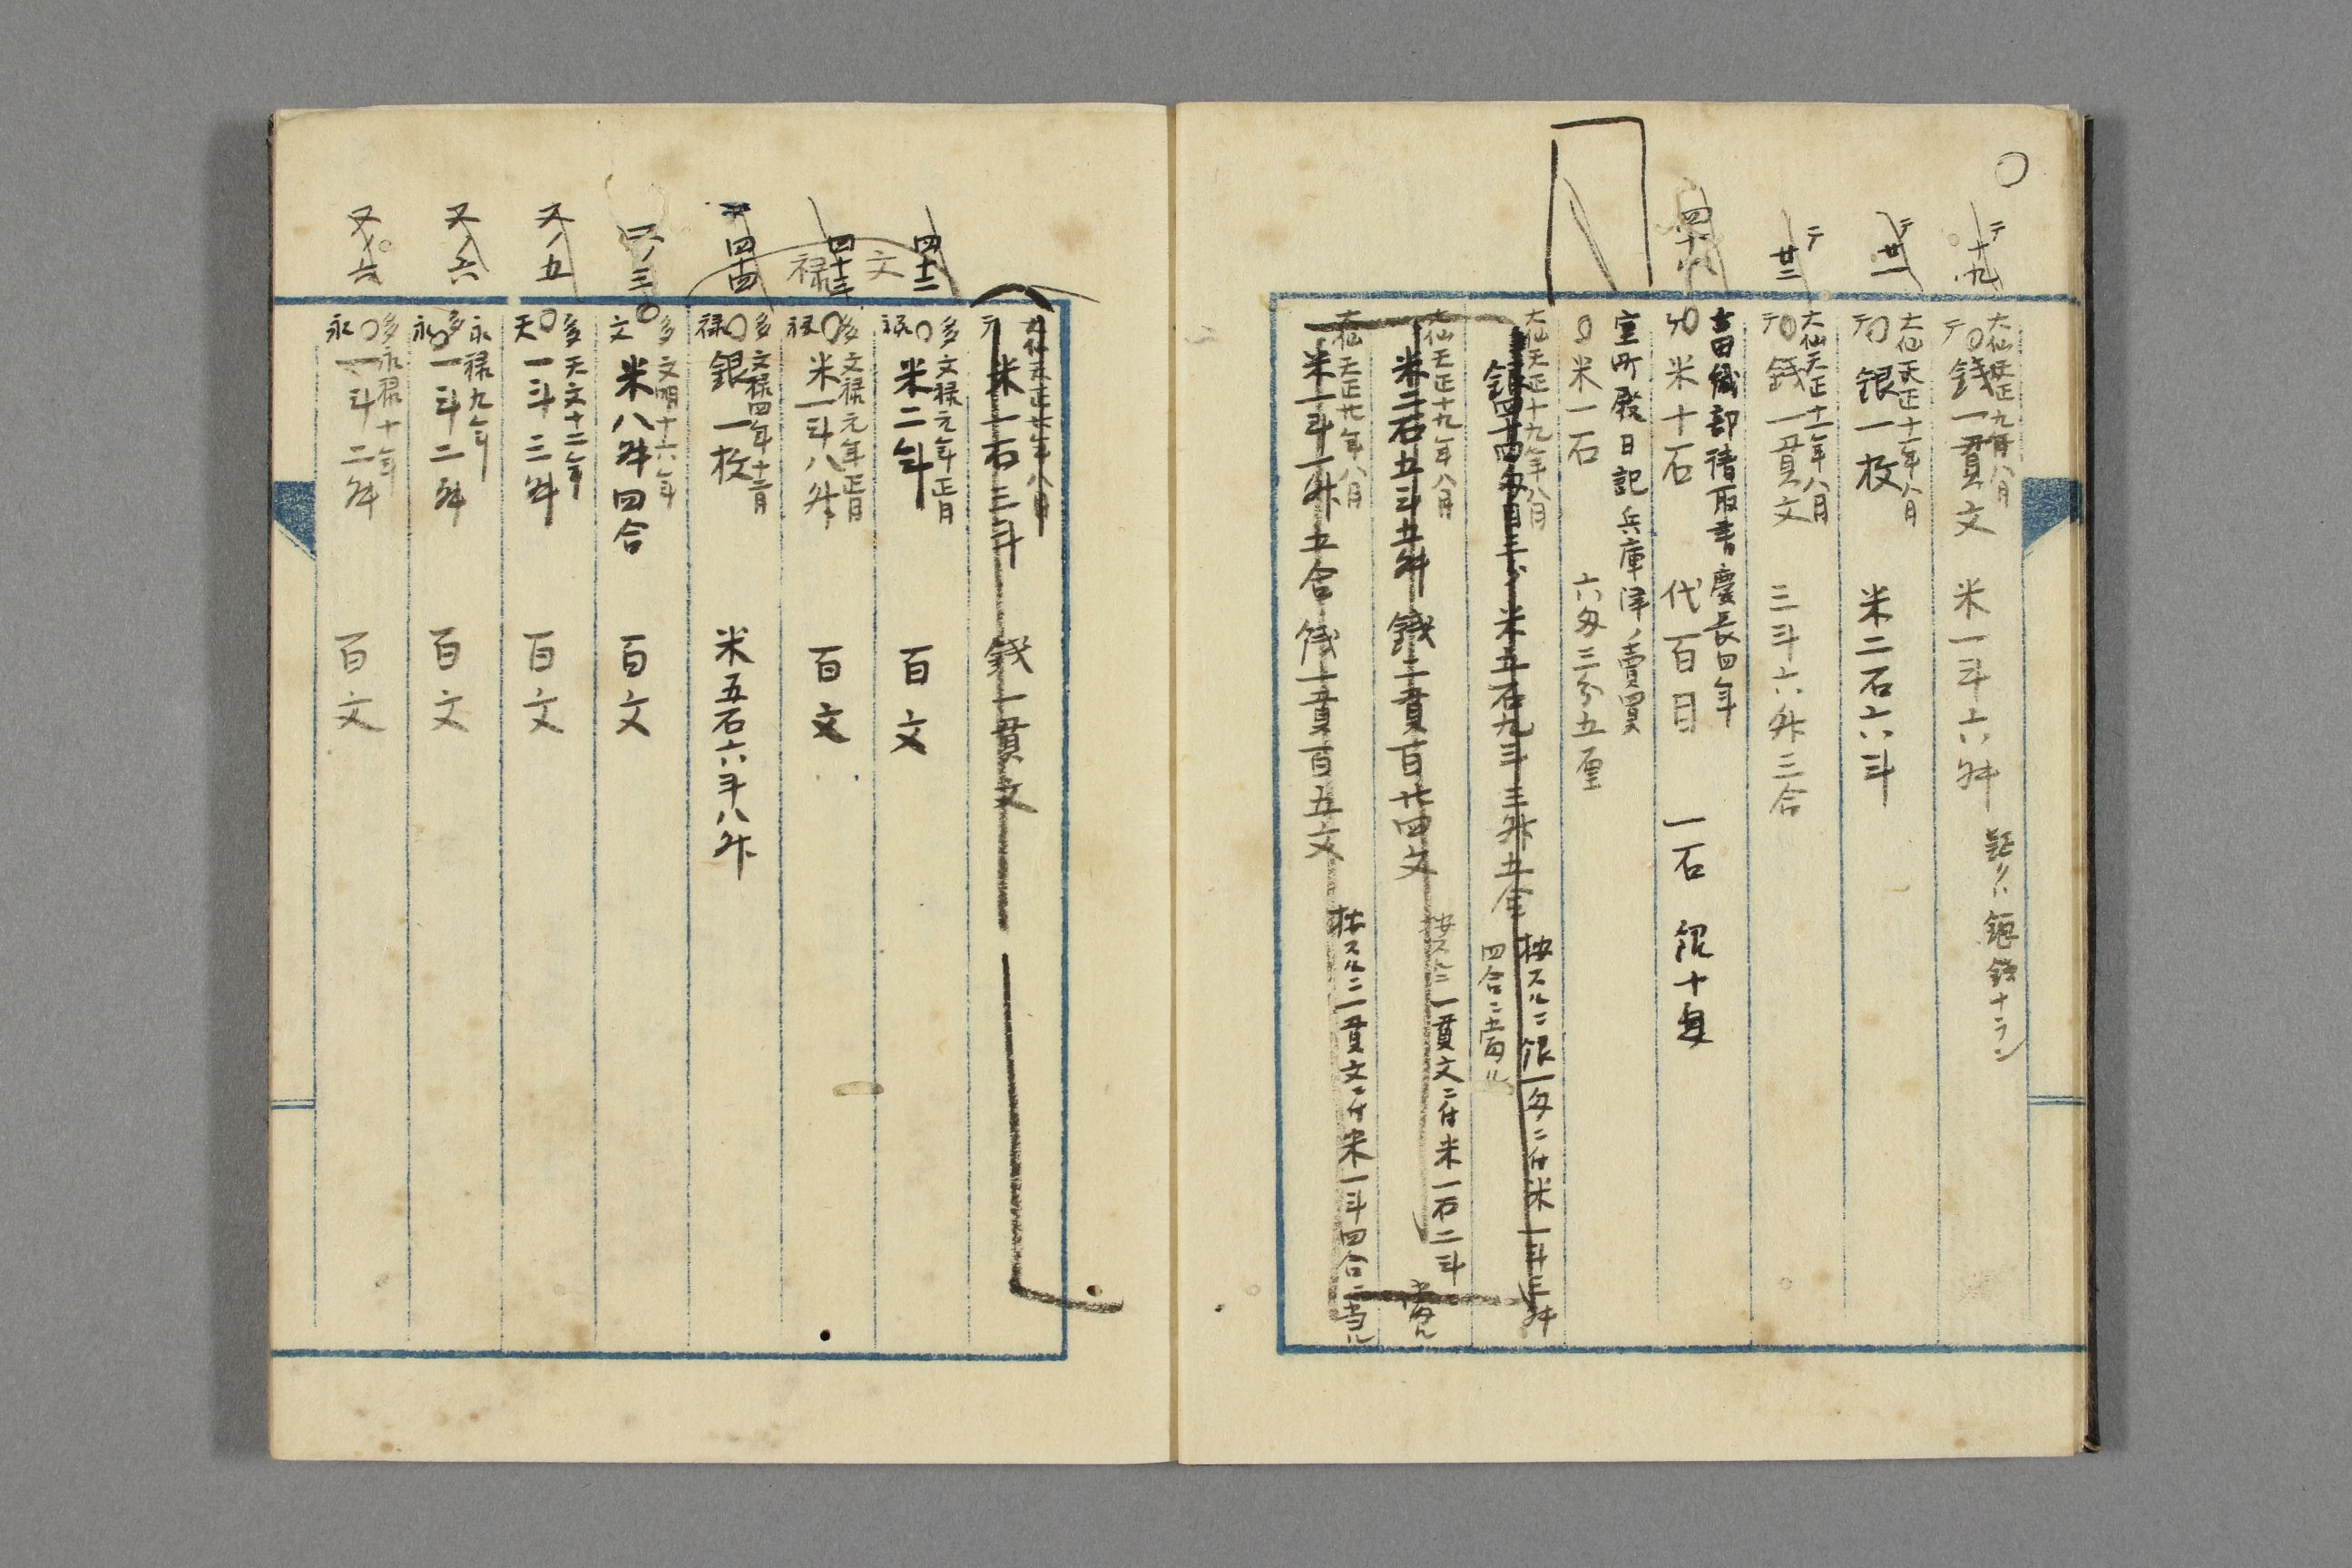 テ十九
大仙天正九年八月
テ〇銭一貫文 米一斗六舛
テ廿一
大仙天正十一年八月
テ〇銀一枚 米二石六斗
テ廿二
大仙天正十一年八月
テ〇銭一貫文 三斗六舛三合
吉田織部請取書慶長四年
〇米十石 代百目 一石 銀十匁
室町殿日記兵庫津ノ賣買
〇米一石 六匁三分五厘
大仙天正十九年八月
米五石九斗三舛五合
按スルニ銀一匁ニ付米一斗三舛
四合ニ當ル
大仙天正十九年八月
米二石五斗五舛 銭二貫百廿四文
按スルニ一貫文ニ付米一石二斗
大仙天正廿年八月
米一斗一舛五合 銭一貫百五文
按スルニ一貫文ニ付米一斗四合ニ当ル
大仙天正廿年八月
テ米一石三斗 銭一貫文
文禄
四十二
多文禄元年正月
禄〇米二斗 百文
四十三
多文禄元年正月
禄〇米一斗八舛 百文
四十四
多文禄四年十二月
禄〇銀一枚 米五石六斗八舛
多文明十六年
文〇米八舛四合 百文
又ノ五
多天文十二年
天〇一斗三舛 百文
又ノ六
多永禄九年
永〇一斗二舛 百文
又ノ六
多永禄十年
永〇一斗二舛 百文